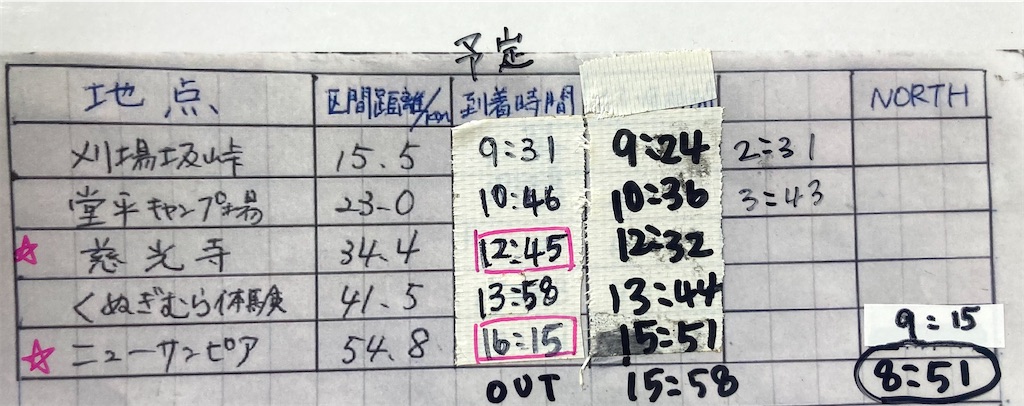 予定
地点 区間距離/km 到着時間 NORTH
刈場坂峠 15.5 9:31 9:24 2:31
堂平キャンプ場 23.0 10:46 10:36 3:43
☆ 慈光寺 34.4 12:45 12:32
くぬぎむら体験 41.5 13:58 13:44
9:15
☆ ニューサンピア 54.8 16:15 15:51
8:51
OUT 15:58